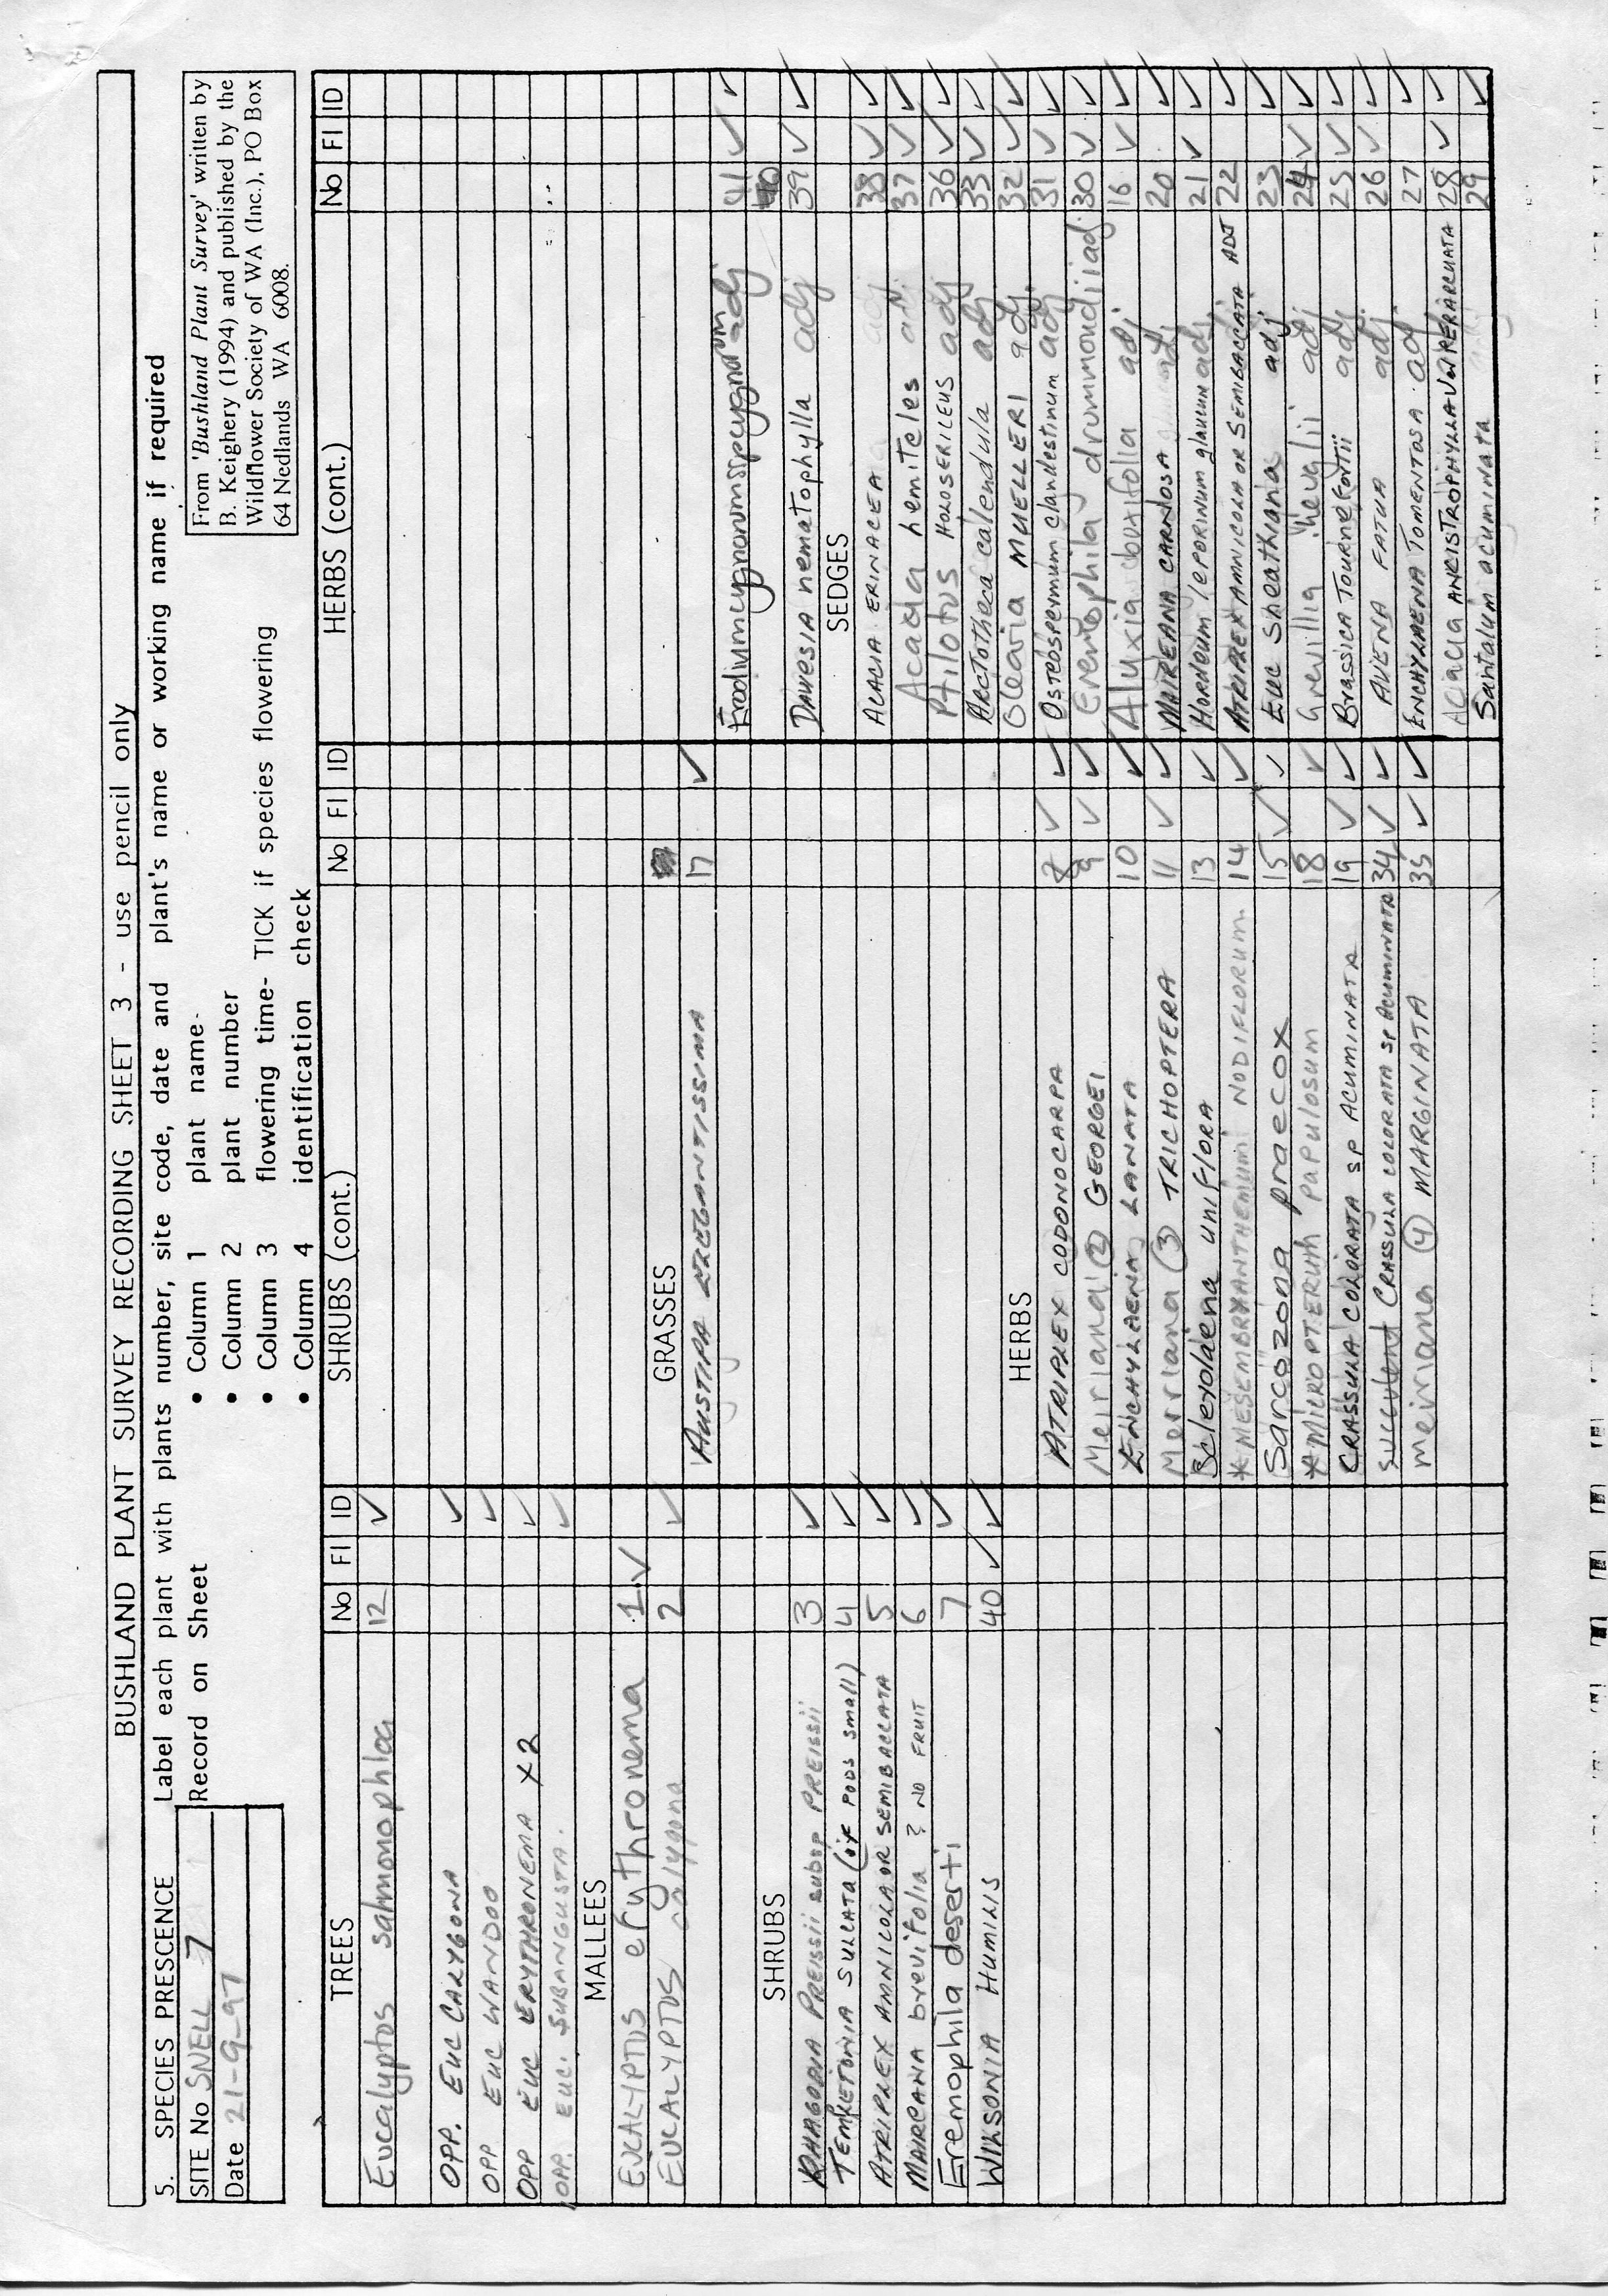 BUSHLAND PLANT SURVEY RECORDING SHEET 3 - use pencil only
5. SPECIES PRESCENCE
SITE No SNELL 7
Date 21-9-97
Label each plant with plants number, site code, date and plant's name or working name if required
Record on Sheet
• Column 1 plant name-
• Column 2 plant number
• Column 3 flowering time- TICK if species flowering
• Column 4 identification check
From 'Bushland Plant Survey' written by
B. Keighery (1994) and published by the
Wildflower Society of WA (Inc.), PO Box
64 Nedlands WA 6008.
TREES No Fl ID
Eucalyptos salmonophloa 12 ✓
OPP. EUC CALYGONA ✓
OPP EUC WANDOO ✓
OPP EUC ERYTHRONEMA X2 ✓
OPP. EUC. SUBANGUSTA. ✓
MALLEES
EUCALYPTUS erythronema 1 ✓
EUCALYPTUS calygona 2 ✓
SHRUBS
RHAGODIA PREISSII subsp PREISSII 3 ✓
TEMPLETONIA SULCATA (if PODS small) 4 ✓
ATRIPLEX AMNICOLA OR SEMIBACCATA 5 ✓
MAIREANA brevifolia ? NO FRUIT 6 ✓
Eremophila deserti 7 ✓
WILSONIA HUMILIS 40 ✓ ✓
SHRUBS (cont.) No Fl ID
GRASSES
AUSTIPA ELEGANTISSIMA 17 ✓
HERBS
ATRIPLEX CODONOCARPA 8 ✓ ✓
Meiriana (2) GEORGEI 9 ✓ ✓
ENCHYLAENA LANATA 10 ✓
Meiriana (3) TRICHOPTERA 11 ✓ ✓
Sclerolaena uniflora 13 ✓
*MESEMBRYANTHEMUM NODIFLORUM 14 ✓
Sarcozona praecox 15 ✓ ✓
*MICROPTERUM PAPULOSUM 18 ✓
CRASSULA COLORATA SP ACUMINATA 19 ✓ ✓
succulent CRASSULA COLORATA SP ACUMINATA 34 ✓ ✓
meiriana (4) MARGINATA 35 ✓ ✓
HERBS (cont.) No Fl ID
Erodium cygnorum adj 41 ✓ ✓
DAVIESIA nematophylla adj 39 ✓ ✓
SEDGES
ACACIA ERINACEA adj 38 ✓ ✓
Acacia hemiteles adj 37 ✓ ✓
Ptilotus HOLOSERICEUS adj 36 ✓ ✓
ARCTOTHECA calendula adj 33 ✓ ✓
Olearia MUELLERI adj. 32 ✓ ✓
Osteospermum clandestinum adj 31 ✓ ✓
Eremophila drummondii adj. 30 ✓ ✓
Alyxia buxifolia adj. 16 ✓ ✓
MAIREANA CARNOSA adj 20 ✓
Hordeum leporinum glaucum adj 21 ✓ ✓
ATRIPLEX AMNICOLA OR SEMIBACCATA ADJ 22 ✓
Euc sheathiana adj. 23 ✓
Grevillia adj 24 ✓ ✓
Brassica Tournefortii adj 25 ✓ ✓
AVENA FATUA adj 26 ✓ ✓
ENCHYLAENA TOMENTOSA adj 27 ✓
Acacia ANCISTROPHYLLA Var PERARCUATA 28 ✓ ✓
Santalum acuminata 29 ✓